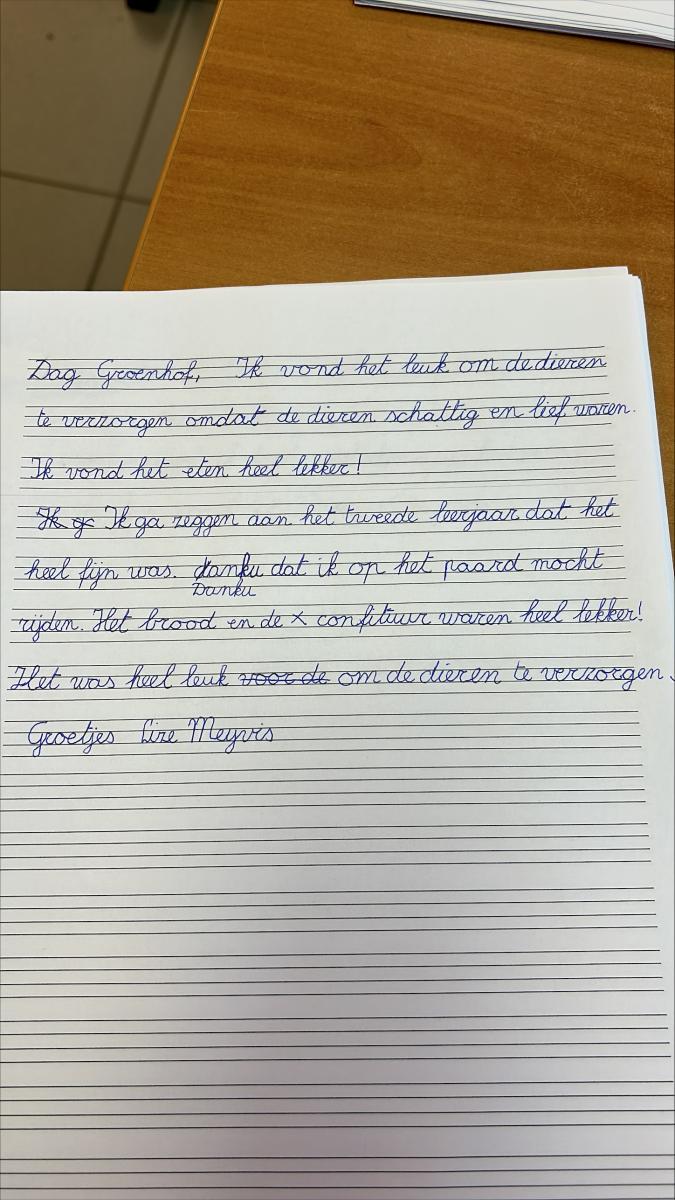 Dag Groenhof, Ik vond het leuk om de dieren
te verzorgen omdat de dieren schattig en lief waren.
Ik vond het eten heel lekker!
Ik g Ik ga zeggen aan het tweede leerjaar dat het
heel fijn was. danku dat ik op het paard mocht
Danku
rijden. Het brood en de x confituur waren heel lekker!
Het was heel leuk voor de om de dieren te verzorgen.
Groetjes Lize Meyvis